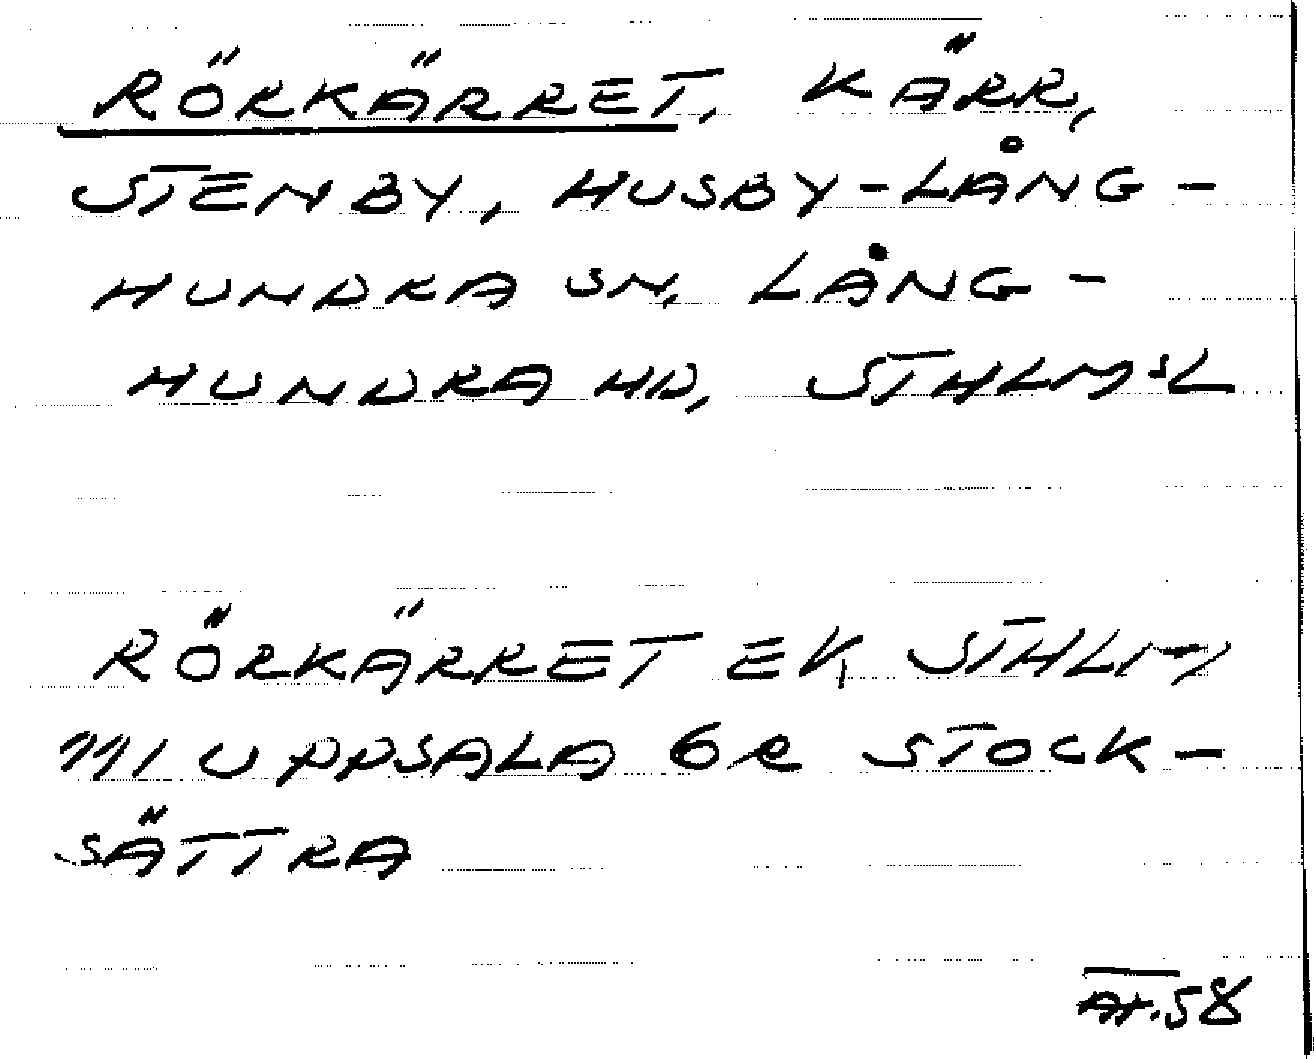 RÖRKÄRRET, KÄRR,
STENBY, HUSBY-LÅNG-
HUNDRA SN, LÅNG-
HUNDRA HD, STHLMSL
RÖRKÄRRET EK STHLM
111 UPPSALA 6R STOCK-
SÄTTRA
58